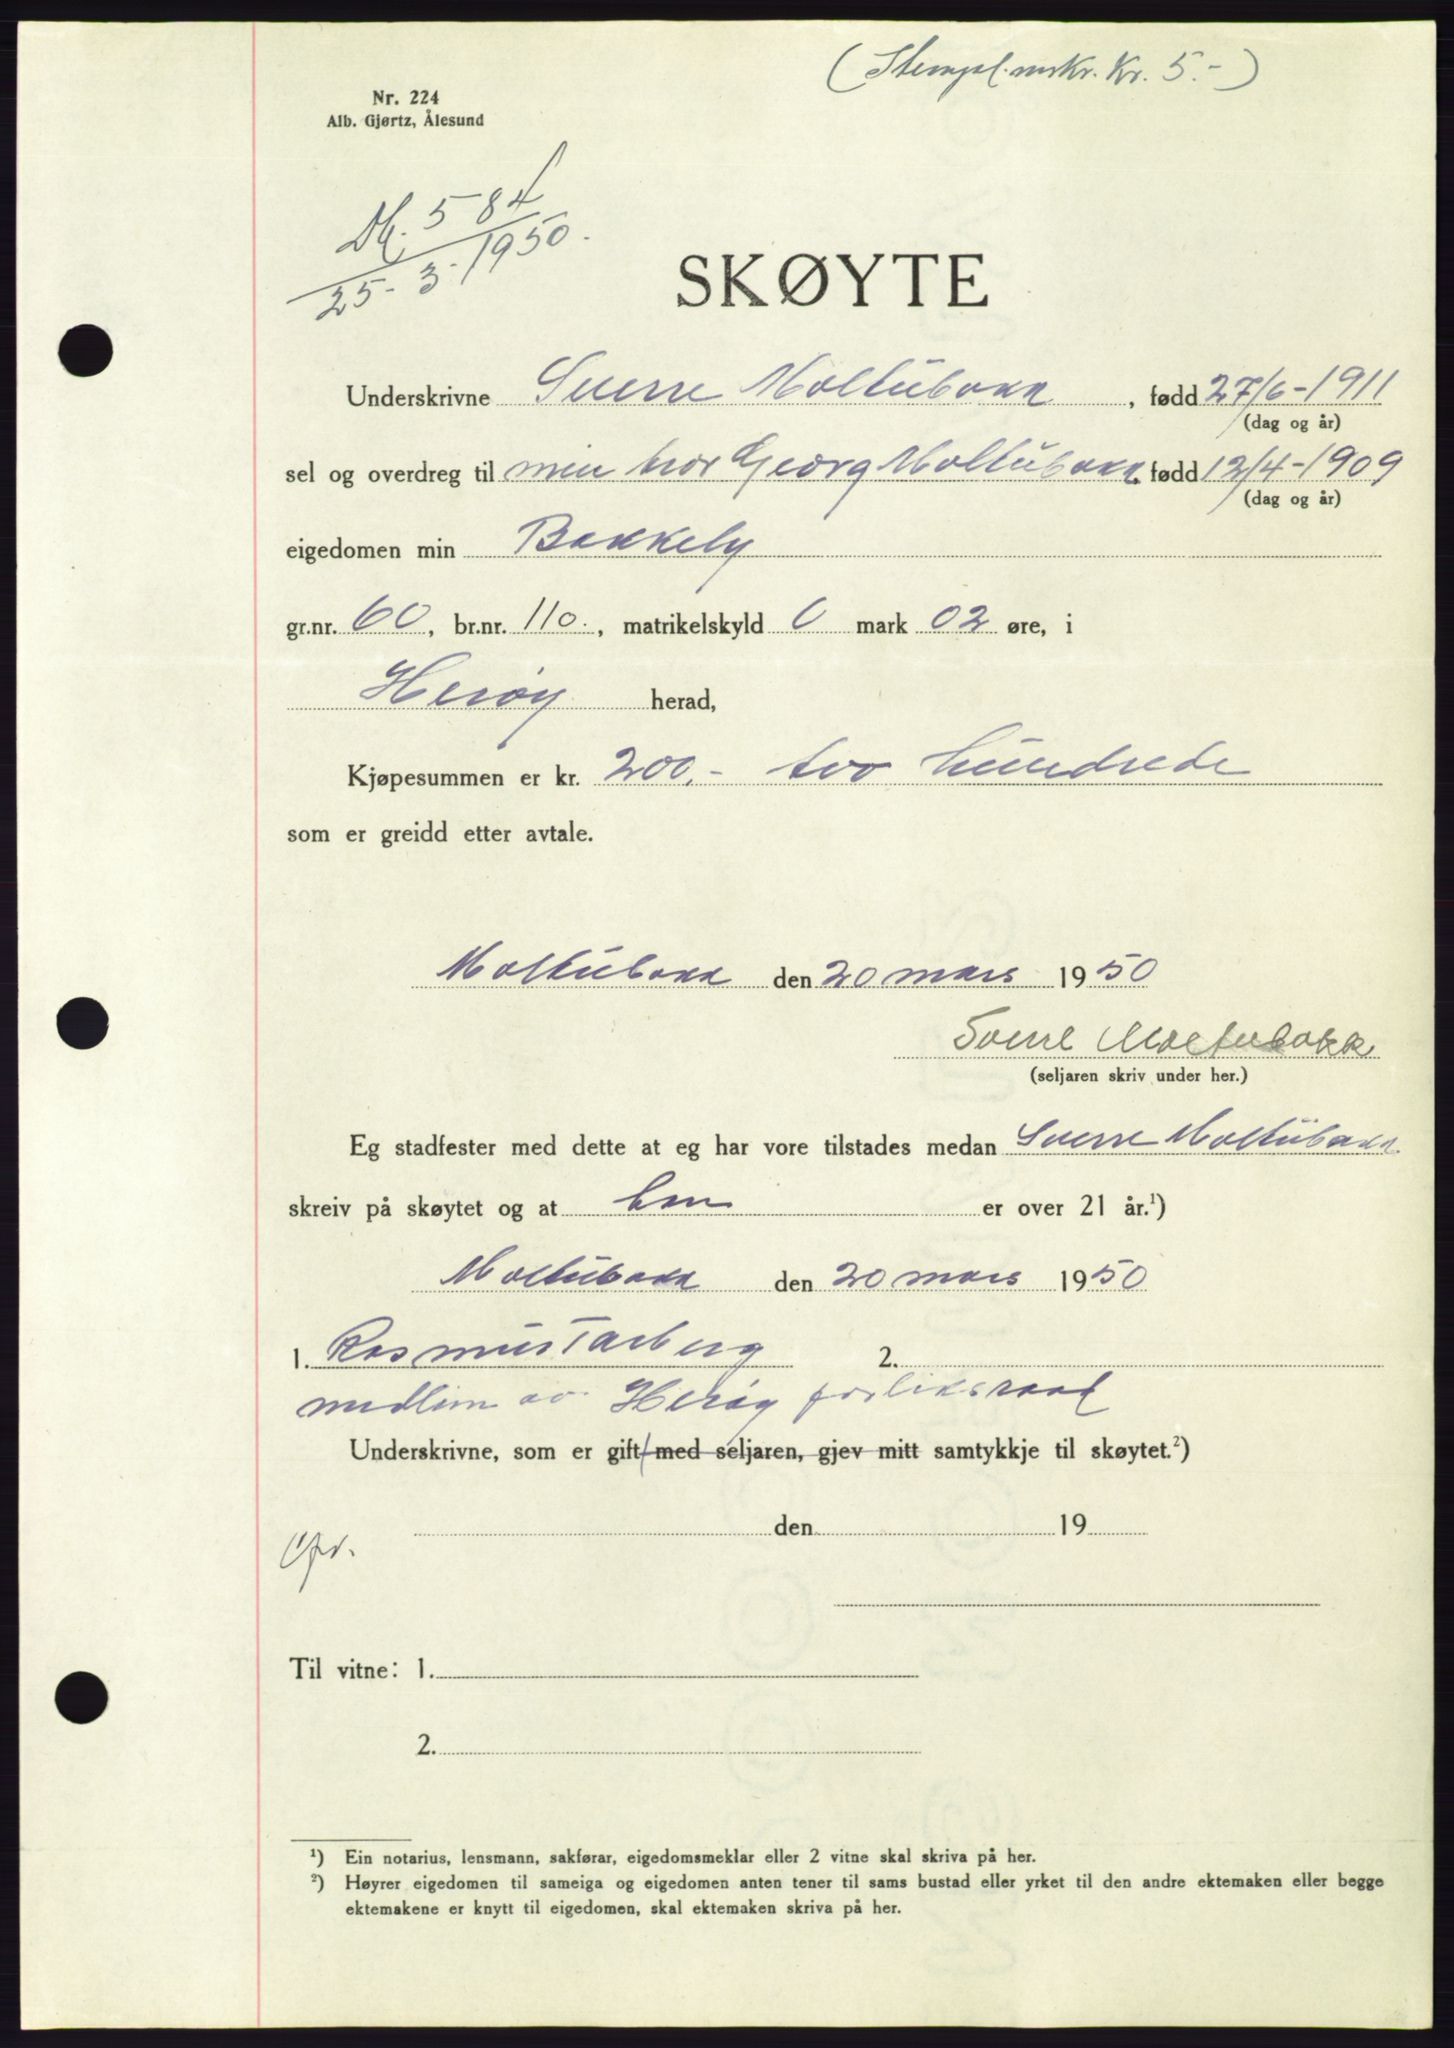 (Stempl.mrkr. Kr. 5.-)
Nr. 224
Alb. Gjørtz, Ålesund
Db. 584
25-3-1950.
SKØYTE
Underskrivne Sverre Moltubakk, fødd 27/6-1911
(dag og år)
sel og overdreg til min bror Georg Moltubakk fødd 12/4-1909
(dag og år)
eigedomen min Bakkely
gr.nr. 60, br.nr. 110., matrikelskyld 0 mark 02 øre, i
Herøy herad,
Kjøpesummen er kr. 200.- tvo hundrede
som er greidd etter avtale.
Moltubakk den 20 mars 1950
Sverre Moltubakk
(seljaren skriv under her.)
Eg stadfester med dette at eg har vore tilstades medan Sverre Moltubakk
skreiv på skøytet og at han er over 21 år.¹)
Moltubakk den 20 mars 1950
1. Rasmus Tarberg 2.
medlem av Herøy forliksraad
Underskrivne, som er gift med seljaren, gjev mitt samtykkje til skøytet.²)
den 19
Til vitne: 1.
2.
¹) Ein notarius, lensmann, sakførar, eigedomsmeklar eller 2 vitne skal skriva på her.
²) Høyrer eigedomen til sameiga og eigedomen anten tener til sams bustad eller yrket til den andre ektemaken eller begge
ektemakene er knytt til eigedomen, skal ektemaken skriva på her.